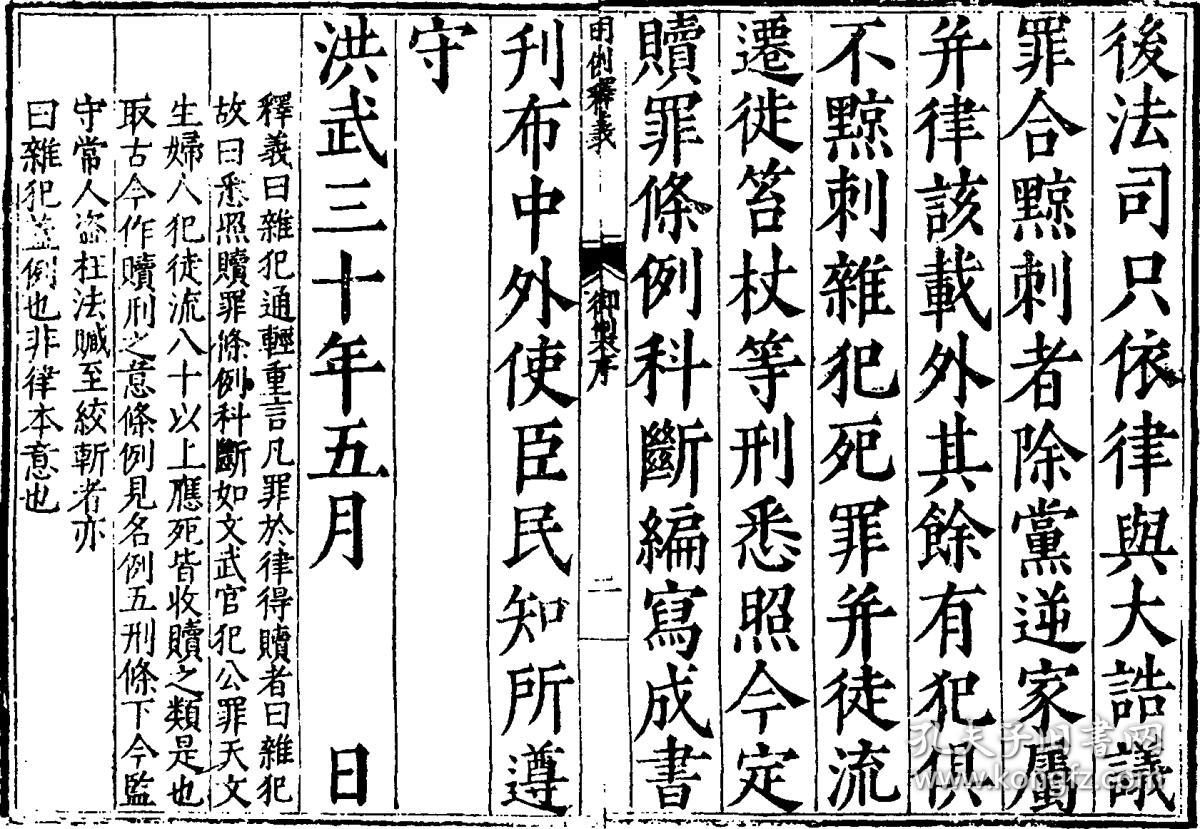 後法司只依律與大誥議
罪合黥刺者除黨逆家屬
并律該載外其餘有犯俱
不黥刺雜犯死罪并徒流
遷徙笞杖等刑悉照今定
贖罪條例科斷編寫成書
明例釋義 御製序 二
刋布中外使臣民知所遵
守
洪武三十年五月 日
釋義曰雜犯通輕重言凡罪於律得贖者曰雜犯
故曰悉照贖罪條例科斷如文武官犯公罪天文
生婦人犯徒流八十以上應死皆收贖之類是也
取古今作贖刑之意條例見名例五刑條下今監
守常人盗枉法贓至絞斬者亦
曰雜犯蓋例也非律本意也
孔夫子旧书网
www.kongfz.com